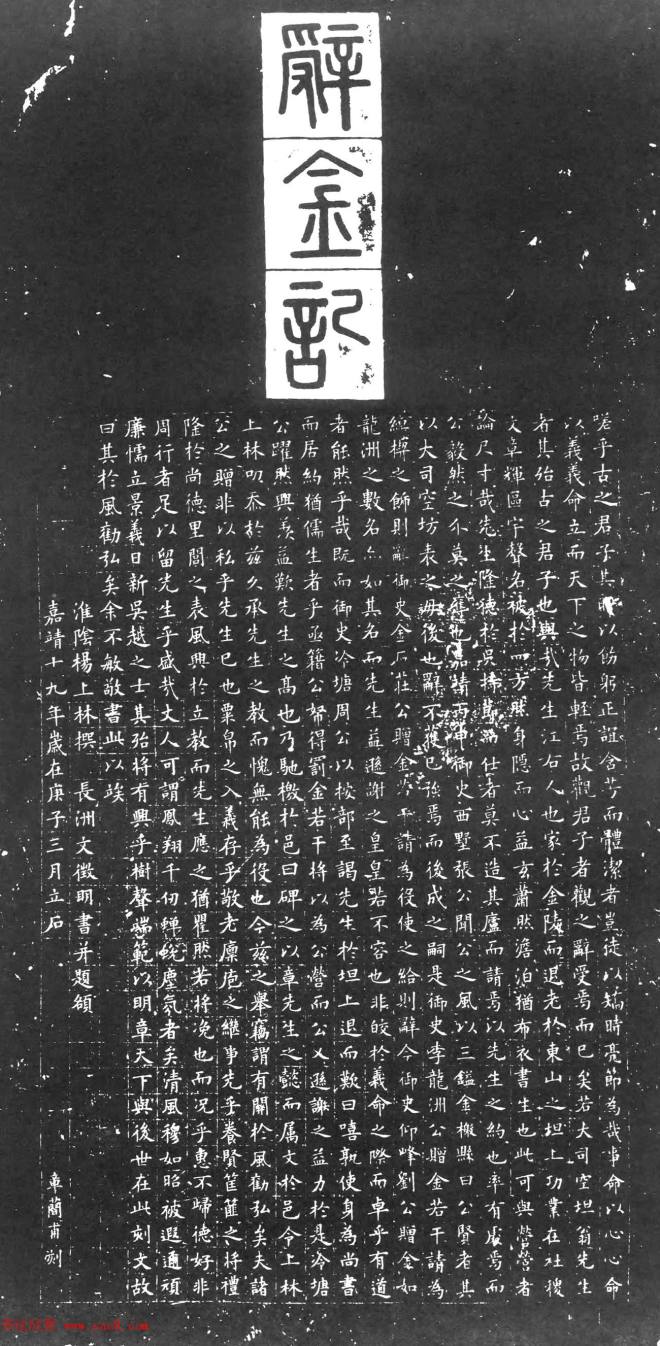 辭金記
嗟乎古之君子其所以飭躬正誼含芳而體潔者豈徒以矯時亮節為哉事命以心心命
以義義命立而天下之物皆輕焉故觀君子者觀之辭受焉而已矣若大司空坦翁先生
者其殆古之君子也與哉先生江右人也家於金陵而退老於東山之坦上功業在社稷
文章輝區宇聲名被於四方然身隱而心益玄蕭然澹泊猶布衣書生也此可與營營者
論尺寸哉先生隆德於吳仕者莫不造其廬而請焉以先生之約也率有處焉而
公毅然之不莫之嘉靖丙申御史西墅張公聞公之風以三鎰金檄縣曰公賢者其
以大司空坊表之毋後也辭不獲已強焉而後成之嗣是御史李龍洲公贈金若干請為
綽楔之飾則辭御史金石莊公贈金若干請為役使之給則辭今御史仰峰劉公贈金如
龍洲之數名亦如其名而先生益遜謝之皇皇若不容也非皎於義命之際而卓乎有道
者能然乎哉既而御史冷塘周公以校部至謁先生於坦上退而歎曰嘻孰使身為尚書
而居約猶儒生者乎亟籍公帑得罰金若干將以為公營而公又遜謝之益力於是冷塘
公躍然興羨益歎先生之高也乃馳檄於邑曰碑之以章先生之懿而属文於邑令上林
上林叨忝於茲久承先生之教而愧無能為役也今茲之舉竊謂有關於風勸弘矣夫諸
公之贈非以私乎先生已也粟帛之入義存乎敬老廩庖之繼事先乎養賢筐篚之將禮
隆於尚德里閭之表風興於立教而先生應之猶瞿然若將浼也而況乎惠不歸德好非
周行者足以留先生乎盛哉丈人可謂鳳翔千仞蟬蛻塵氛者矣清風穆如昭被遐邇頑
廉懦立景義日新吳越之士其殆將有興乎樹聲端範以明章天下與後世在此刻文故
曰其於風勸弘矣余不敏敬書此以竢
淮陰楊上林撰 長洲文徵明書并題額
嘉靖十九年歲在庚子三月立石
章簡甫刻